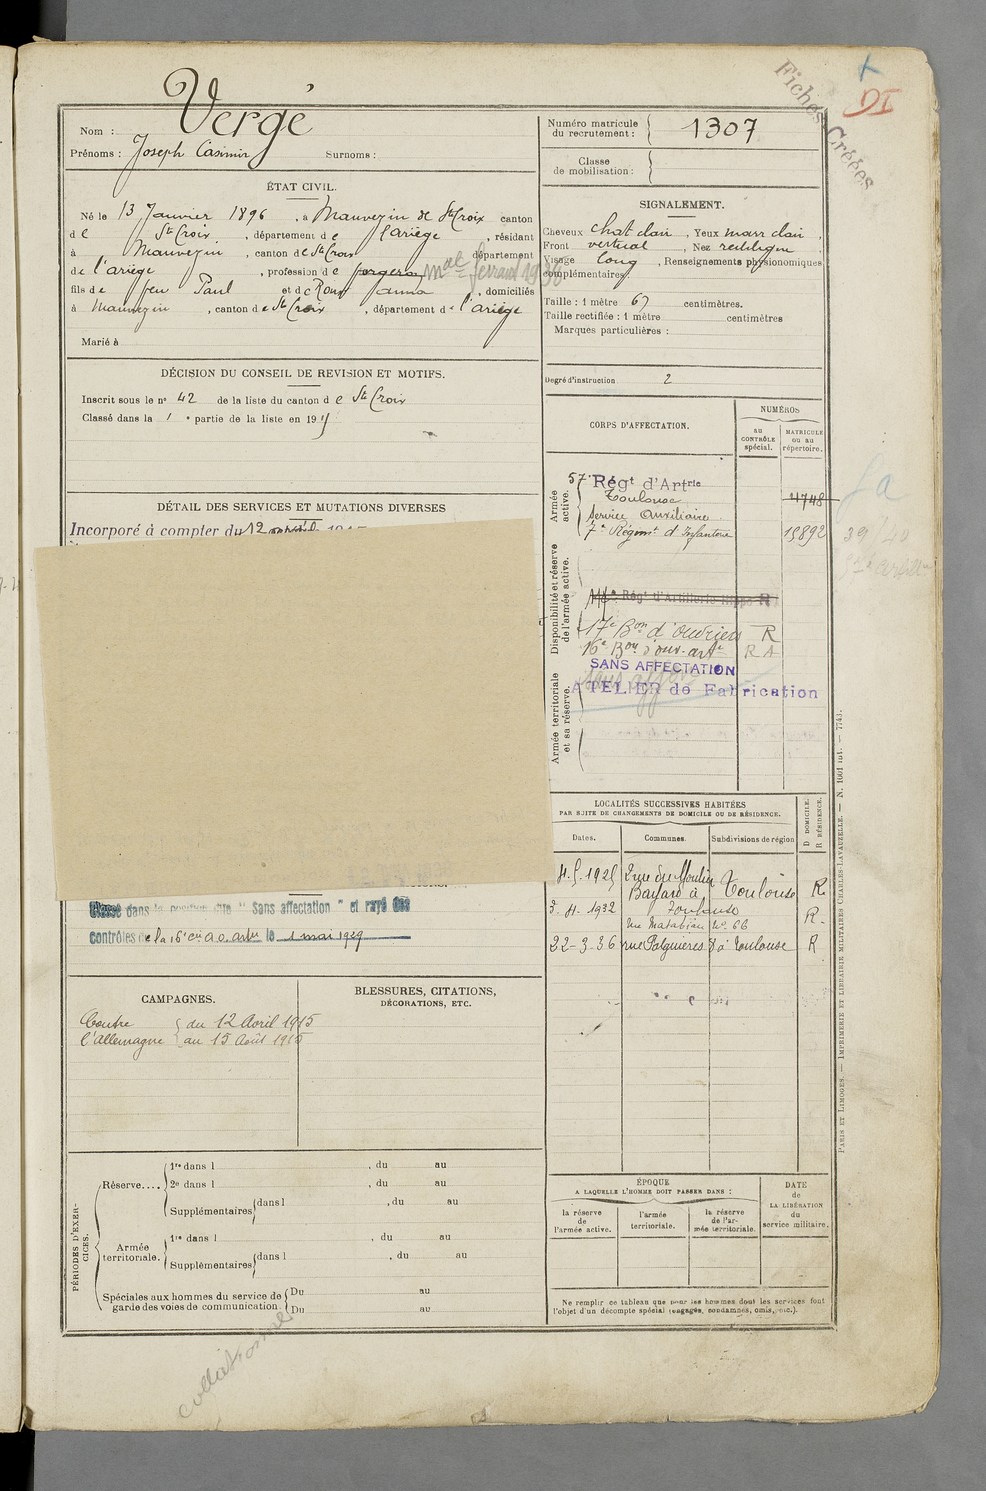 Fiches Créées
DI
Vergé
Nom :
Prénoms : Joseph Casimir Surnoms :
Numéro matricule du recrutement : 1307
Classe de mobilisation :
ÉTAT CIVIL.
Né le 13 Janvier 1896, à Mauvezin de Ste Croix canton
de Ste Croix, département de l'ariège, résidant
à Mauvezin, canton de Ste Croix département
de l'ariège, profession de forgeron mal ferrant 1936
fils de feu Paul et de Roux Janna, domiciliés
à Mauvezin, canton de Ste Croix, département de l'ariège
Marié à
SIGNALEMENT.
Cheveux chat clair, Yeux marr clair,
Front vertical, Nez rectiligne
Visage long, Renseignements physionomiques
complémentaires:
Taille : 1 mètre 67 centimètres.
Taille rectifiée : 1 mètre centimètres
Marques particulières :
Degré d'instruction 2
DÉCISION DU CONSEIL DE REVISION ET MOTIFS.
Inscrit sous le no 42 de la liste du canton de Ste Croix
Classé dans la 1 e partie de la liste en 19
DÉTAIL DES SERVICES ET MUTATIONS DIVERSES
Incorporé à compter du 12
CORPS D'AFFECTATION.
NUMÉROS
au CONTRÔLE spécial.
MATRICULE ou au répertoire.
Armée active.
57e Régt d'Artrie
Toulouse 4748
Service Auxiliaire
7e Régim. d'Infanterie 15892
Disponibilité et réserve de l'armée active.
Régt d'Artillerie
17e Bon d'Ouvriers R
16e Bon d'ouv. art. R A
SANS AFFECTATION
ATELIER de Fabrication
Armée territoriale et sa réserve.
39/40
Classé dans la position dite "Sans affection" et rayé des
contrôles de la 16e le 1 mai 1929
LOCALITÉS SUCCESSIVES HABITÉES
PAR SUITE DE CHANGEMENTS DE DOMICILE OU DE RÉSIDENCE.
Dates. Communes. Subdivisions de région D DOMICILE. R RÉSIDENCE.
1925 2 rue du Moulin
Bayard à Toulouse R
3. 4. 1932 Toulouse
rue Matabiau No 66 R.
22-3-36 rue Palgnières 8 à Toulouse R
CAMPAGNES.
Contre du 12 Avril 1915
l'Allemagne au 15 Août 1915
BLESSURES, CITATIONS,
DÉCORATIONS, ETC.
PÉRIODES D'EXERCICES.
Réserve....
1re dans l , du au
2e dans l , du au
Supplémentaires dans l , du au
Armée territoriale.
1re dans l , du au
Supplémentaires dans l , du au
Spéciales aux hommes du service de garde des voies de communication.
Du au
Du au
ÉPOQUE
A LAQUELLE L'HOMME DOIT PASSER DANS :
la réserve de l'armée active.
l'armée territoriale.
la réserve de l'armée territoriale.
DATE de LA LIBÉRATION du service militaire.
Ne remplir ce tableau que pour les hommes dont les services font
l'objet d'un décompte spécial (engagés, condamnés, omis, etc.).
PARIS ET LIMOGES. — IMPRIMERIE ET LIBRAIRIE MILITAIRES CHARLES-LAVAUZELLE. — N. 1601 int. — 7743.
collationné